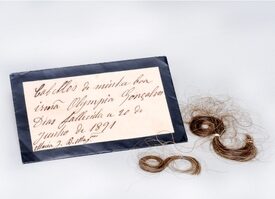 Cabellos da minha boa
irmã Olympia Gonçalves
Dias fallecida a 20 de
Junho de 1891
Maria